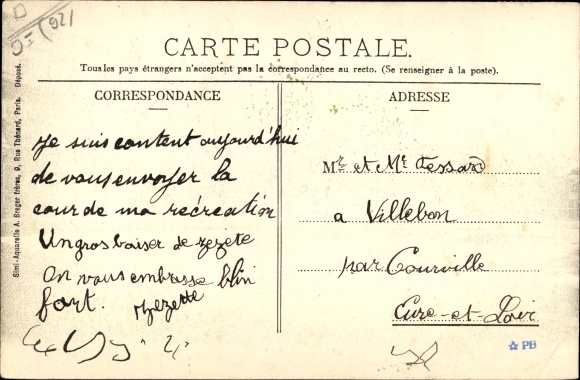 (92)
CARTE POSTALE.
Tous les pays étrangers n'acceptent pas la correspondance au recto. (Se renseigner à la poste).
CORRESPONDANCE
Je suis content aujourd'hui
de vous envoyer la
cour de ma recréation
Un gros baiser de zezete
On vous embrasse blin
fort.
ADRESSE
Mr et Me Tessard
a Villebon
par Courville
Eure-et-Loir
PB
Simi-Aquarelle A. Breger frères, 9, Rue Thénard, Paris. Déposé.